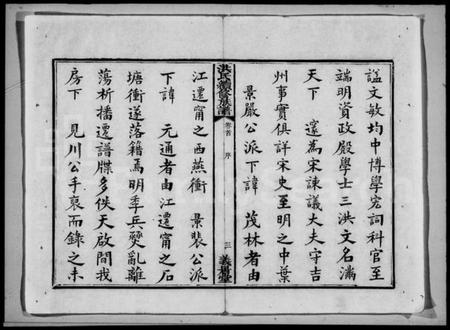 謚文敏均中博學宏詞科官至
端明資政殿學士三洪文名滿
天下 邃為宋諫議大夫守吉
州事實俱詳宋史至明之中葉
景嚴公派下諱 茂林者由
洪氏續修族譜 卷首 序 三 義樹堂
江遷甯之西燕衝 景裴公派
下諱 元通者由江遷甯之石
塘衝遂落籍焉明季兵燹亂離
蕩析播遷譜牒多佚天啟間我
房下 見川公手裒而錄之未